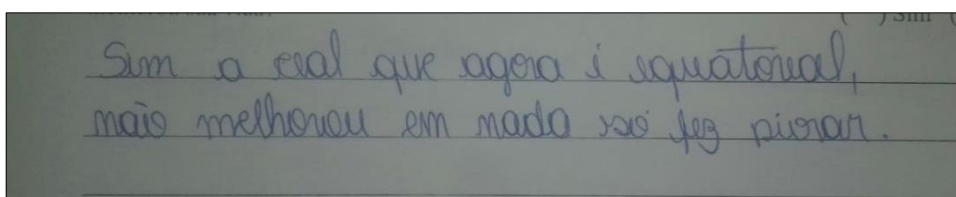 ( ) Sim (
Sim a ceal que agora é equatorial,
não melhorou em nada só fez piorar.